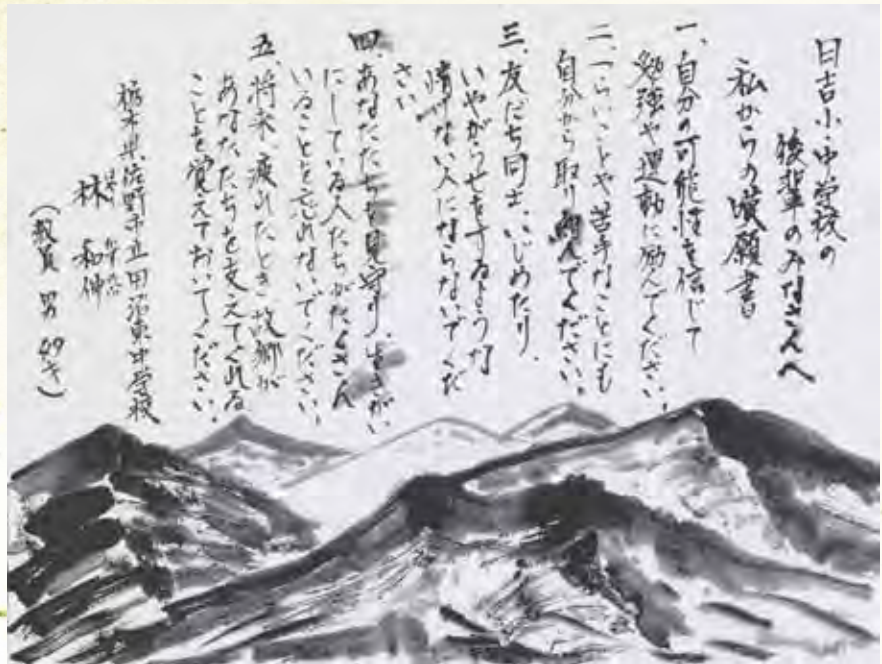 日吉小・中学校の
後輩のみなさんへ
私からの嘆願書
一、自分の可能性を信じて
勉強や運動に励んでください。
二、つらいことや苦手なことにも
自分から取り組んでください。
三、友だち同士、いじめたり、
いやがらせをするような
情けない人にならないでくだ
さい
四、あなたたちを見守り、生きがい
にしている人たちがたくさん
いることを忘れないでください。
五、将来、疲れたとき故郷が
あなたたちを支えてくれる
ことを覚えておいてください。
栃木県佐野市立田沼東中学校
林 和伸
(教員 男 49才)